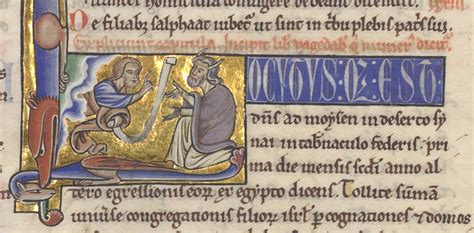 De filiab; salphaat iubet ut sint in tbu plebis patris sui.
Expliciunt capitula. Incipit lib uagedab q numeri dicit
LOCUTUS Q; EST
dns ad moysen in deserto sy
nai in tabnaculo federis. pri
ma die mensis scdi anno al
tero egressionis eor, ex egypto dicens. Tollite summā
uniuse congregationis filior isrl p cognationes & domos